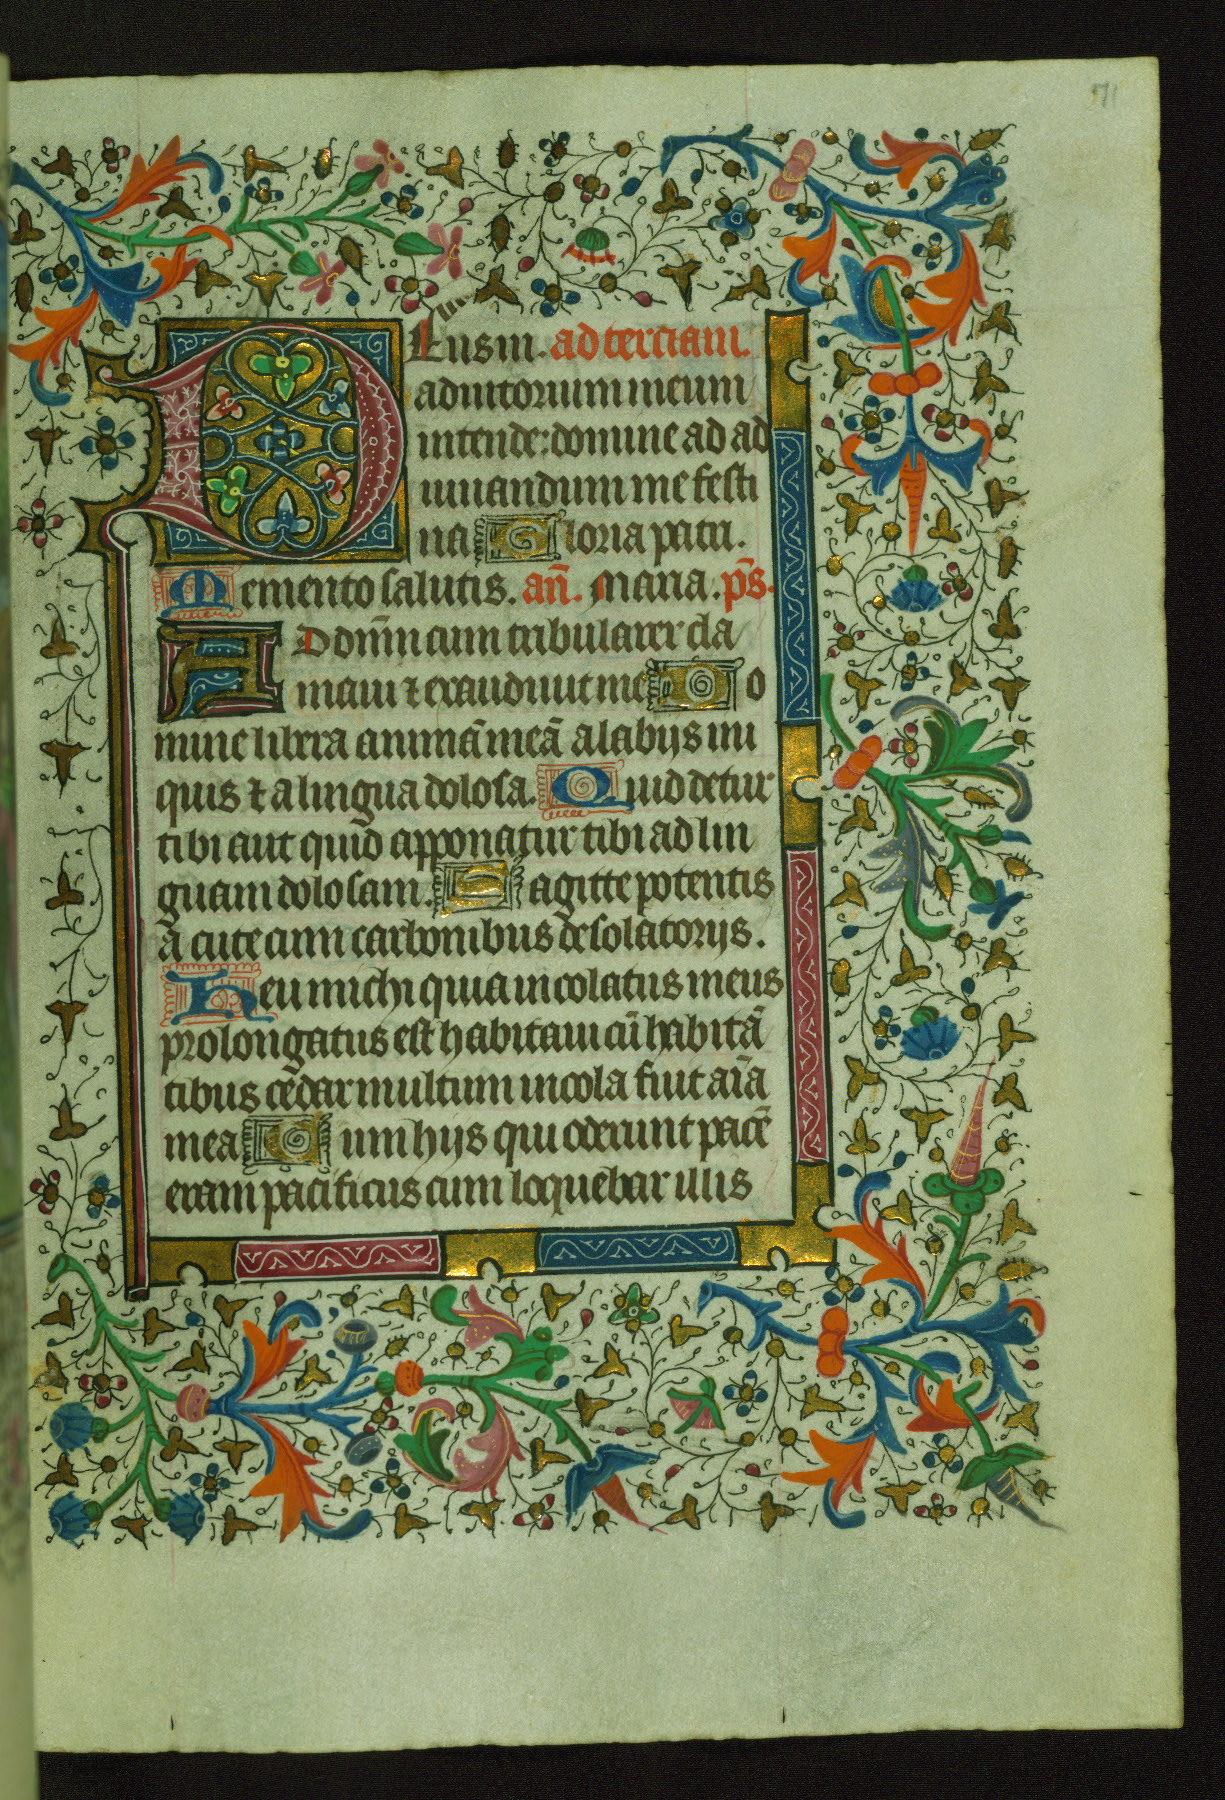 71
Deus in. ad terciam.
adiutorium meum
intende: domine ad ad
iuuandum me festi
na Gloria patri.
Memento salutis. an̄. Maria. p̄s.
AD dom̄ cum tribularer cla
maui ⁊ exaudiuit me Do
mine libera animā meā a labijs ini
quis ⁊ a lingua dolosa. Quid detur
tibi aut quid apponatur tibi ad lin
guam dolosam. Sagitte potentis
a cute cum carbonibus desolatorijs.
Heu michi quia incolatus meus
prolongatus est habitaui cū habitā
tibus cedar multum incola fiut aīa
mea Cum hijs qui oderunt pacē
eram pacificus cum loquebar illis